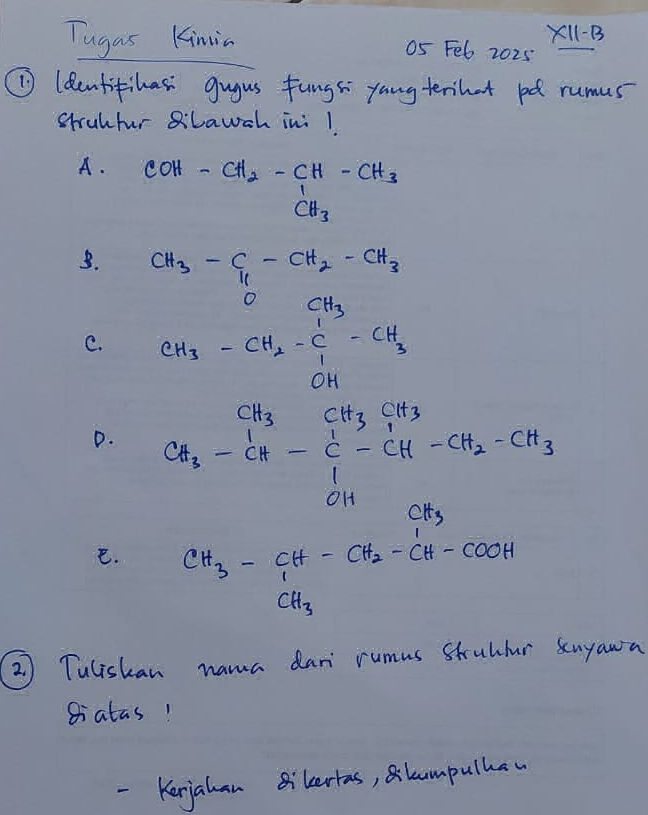 Tugas Kimia
XII-B
05 Feb 2025
① Identifikasi gugus fungsi yang terihat pd rumus
struktur dibawah ini !
A. COH - CH₂ - CH - CH₃
CH₃
B. CH₃ - C - CH₂ - CH₃
O
CH₃
C. CH₃ - CH₂ - C - CH₃
OH
CH₃ CH₃ CH₃
D. CH₃ - CH - C - CH - CH₂ - CH₃
OH
CH₃
E. CH₃ - CH - CH₂ - CH - COOH
CH₃
② Tuliskan nama dari rumus struktur senyawa
diatas !
- Kerjakan dikertas, dikumpulkan